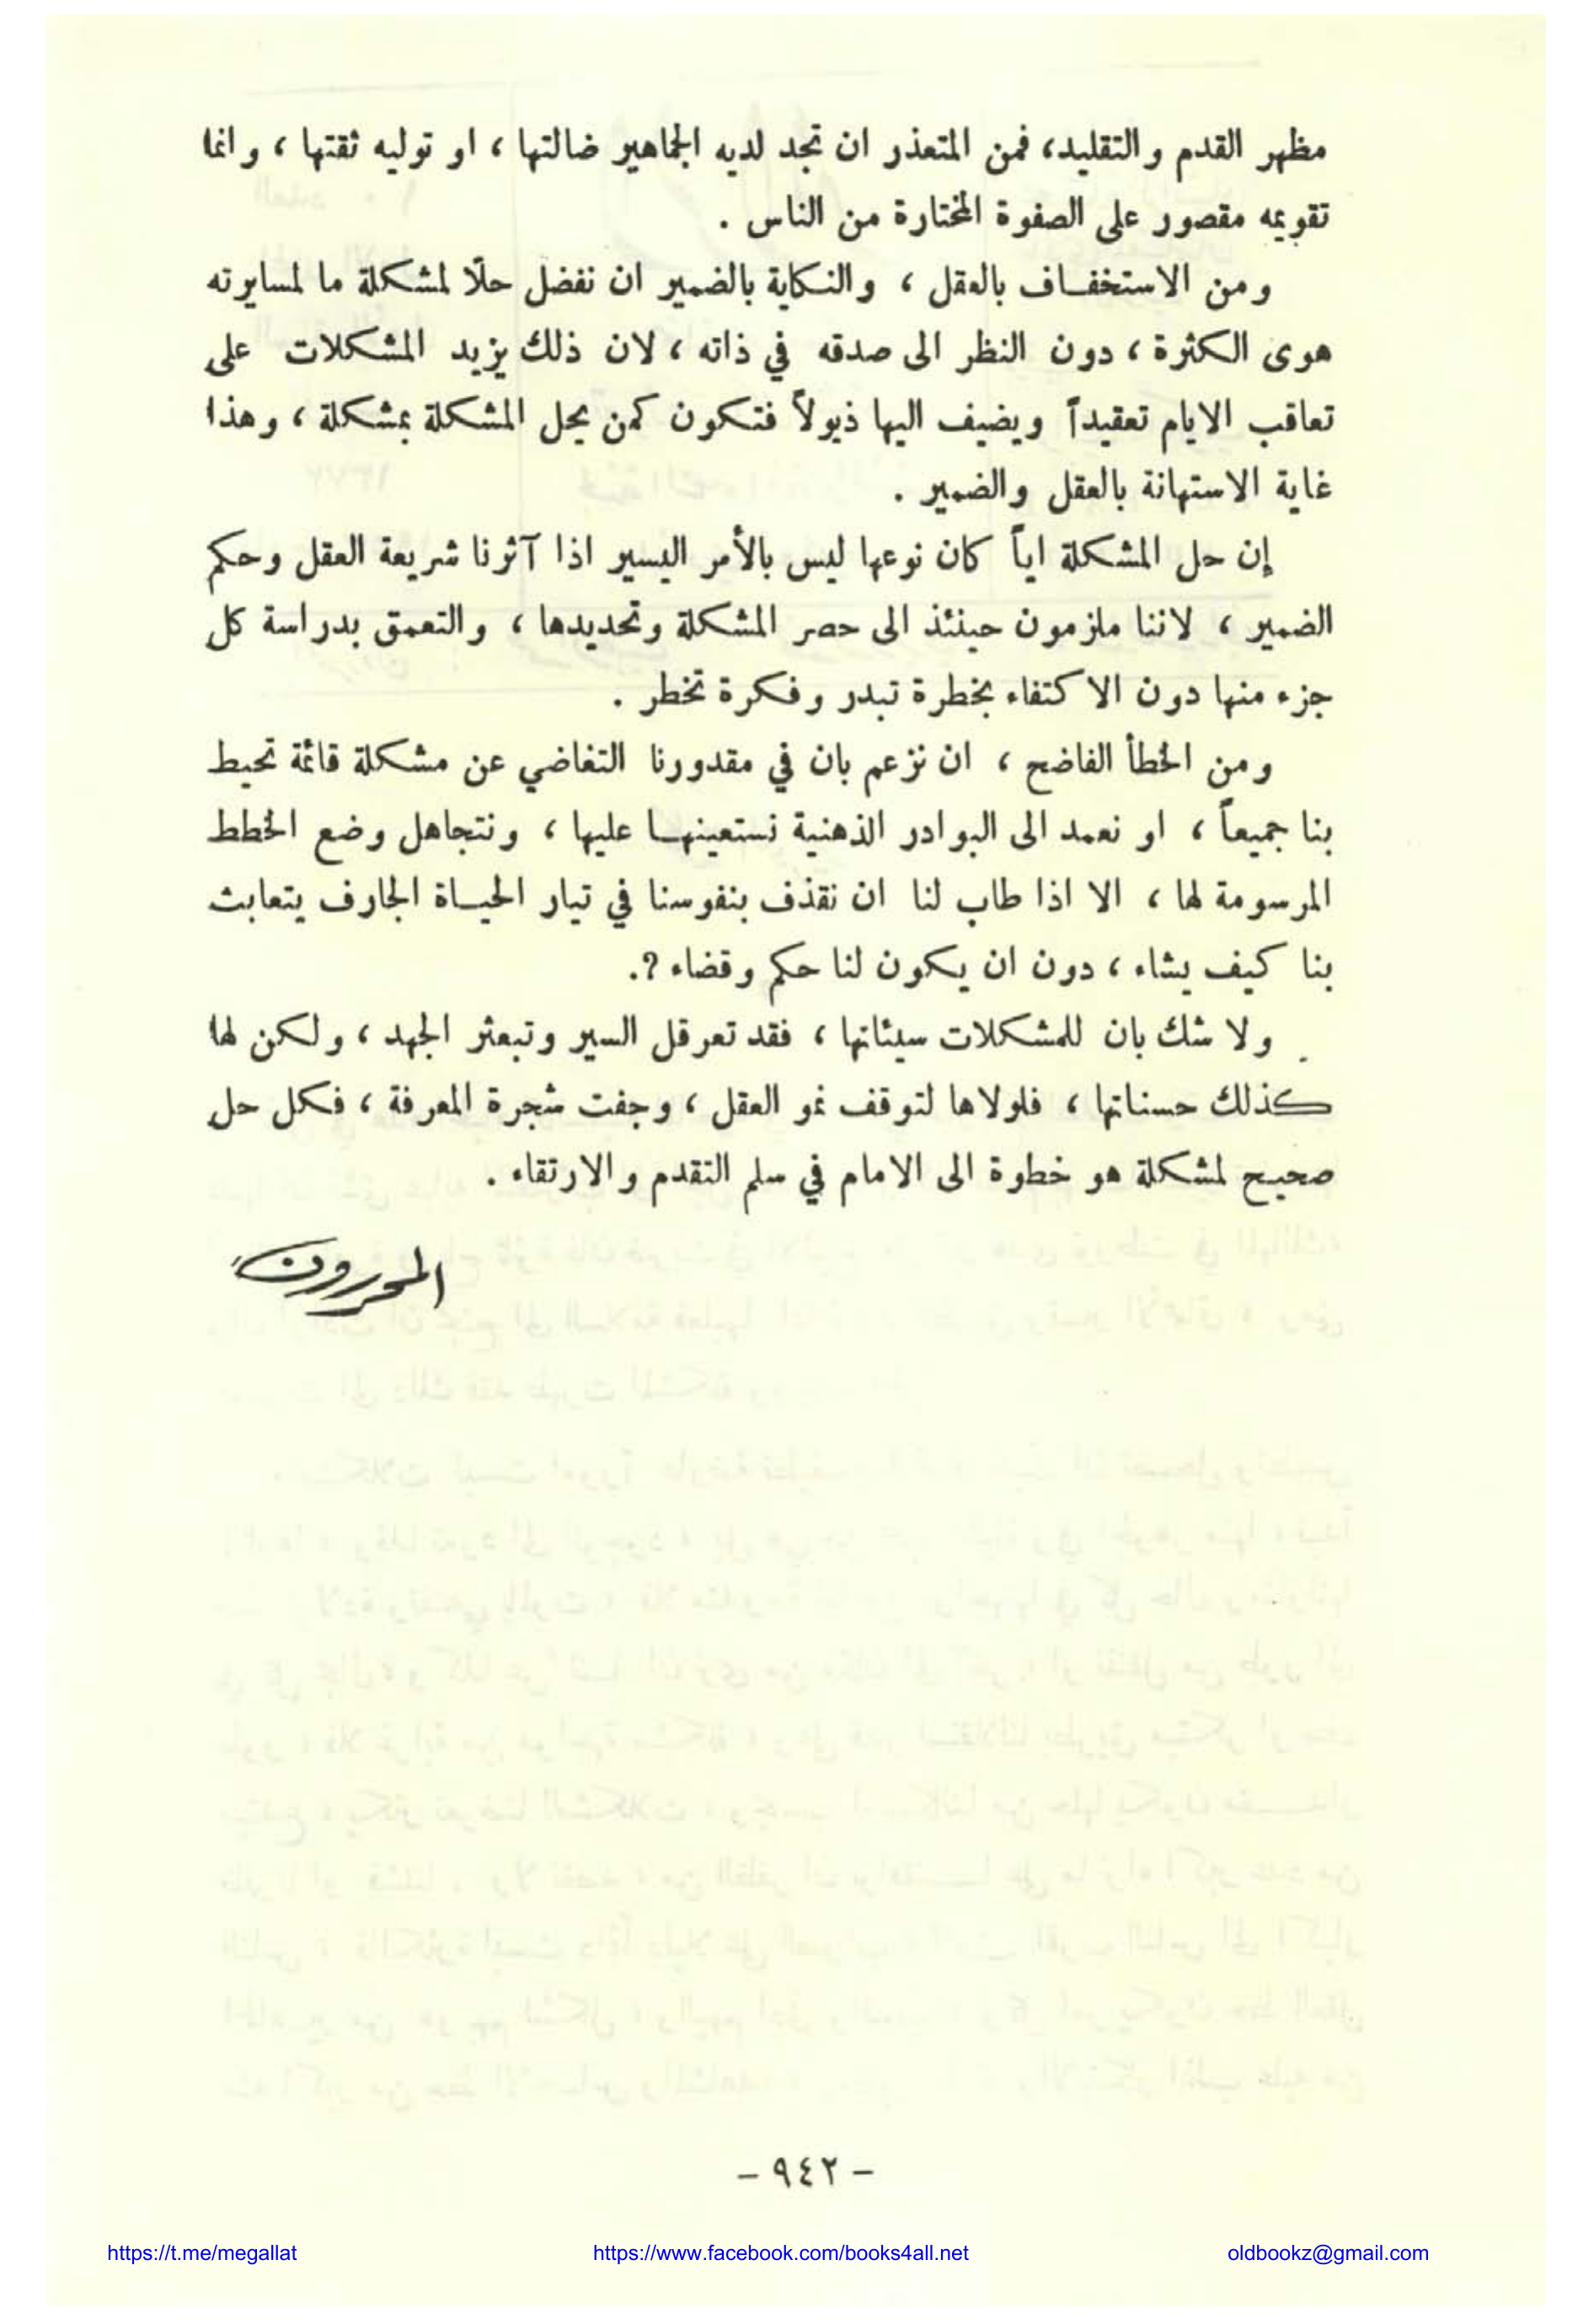 مظهر القدم والتقليد، فمن المتعذر ان تجد لديه الجماهير ضالتها ، او توليه ثقتها ، وانما
تقويمه مقصور على الصفوة المختارة من الناس .
ومن الاستخفاف بالعقل ، والنكاية بالضمير ان نفضل حلًا لمشكلة ما لمسايرته
هوى الكثرة ، دون النظر الى صدقه في ذاته ، لان ذلك يزيد المشكلات على
تعاقب الايام تعقيداً ويضيف اليها ذيولاً فتكون كمن يحل المشكلة بمشكلة ، وهذا
غاية الاستهانة بالعقل والضمير .
إن حل المشكلة اياً كان نوعها ليس بالأمر اليسير اذا آثرنا شريعة العقل وحكم
الضمير ، لاننا ملزمون حينئذ الى حصر المشكلة وتحديدها ، والتعمق بدراسة كل
جزء منها دون الاكتفاء بخطرة تبدر وفكرة تخطر .
ومن الخطأ الفاضح ، ان نزعم بان في مقدورنا التغاضي عن مشكلة قائمة تحيط
بنا جميعاً ، او نعمد الى البوادر الذهنية نستعينها عليها ، ونتجاهل وضع الخطط
المرسومة لها ، الا اذا طاب لنا ان نقذف بنفوسنا في تيار الحياة الجارف يتعابث
بنا كيف يشاء ، دون ان يكون لنا حكم وقضاء ؟.
ولا شك بان للمشكلات سيئاتها ، فقد تعرقل السير وتبعثر الجهد ، ولكن لها
كذلك حسناتها ، فلولاها لتوقف نمو العقل ، وجفت شجرة المعرفة ، فكل حل
صحيح لمشكلة هو خطوة الى الامام في سلم التقدم والارتقاء .
المحررون
- ٩٤٢ -
https://t.me/megallat https://www.facebook.com/books4all.net oldbookz@gmail.com